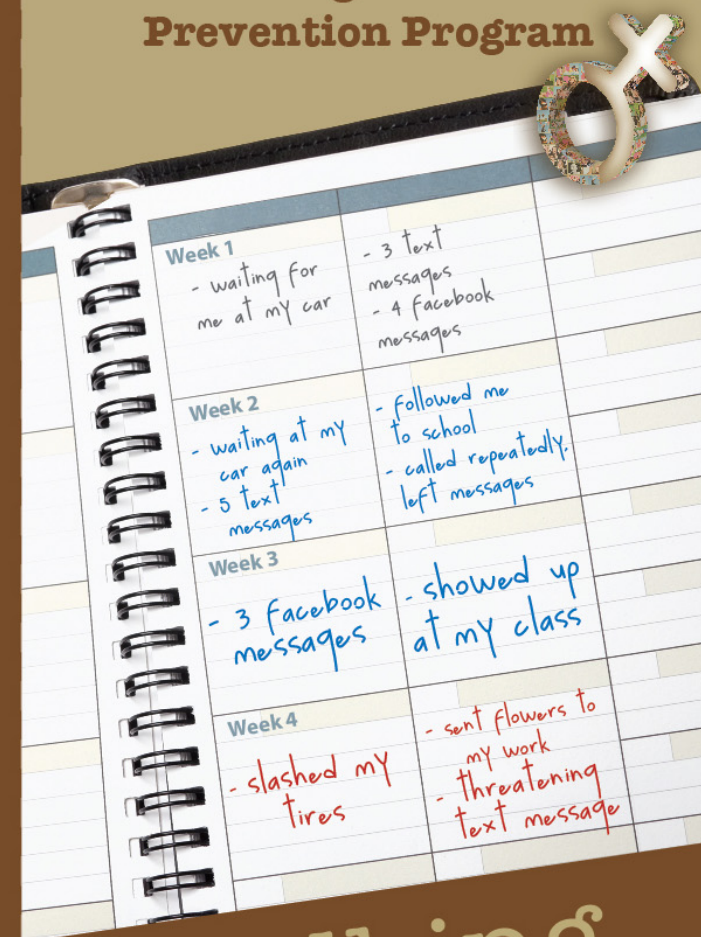 Prevention Program
Week 1
- waiting for
me at my car
- 3 text
messages
- 4 facebook
messages
Week 2
- waiting at my
car again
- 5 text
messages
- followed me
to school
- called repeatedly.
left messages
Week 3
- 3 facebook
messages
- showed up
at my class
Week 4
- slashed my
tires
- sent flowers to
my work
- threatening
text message